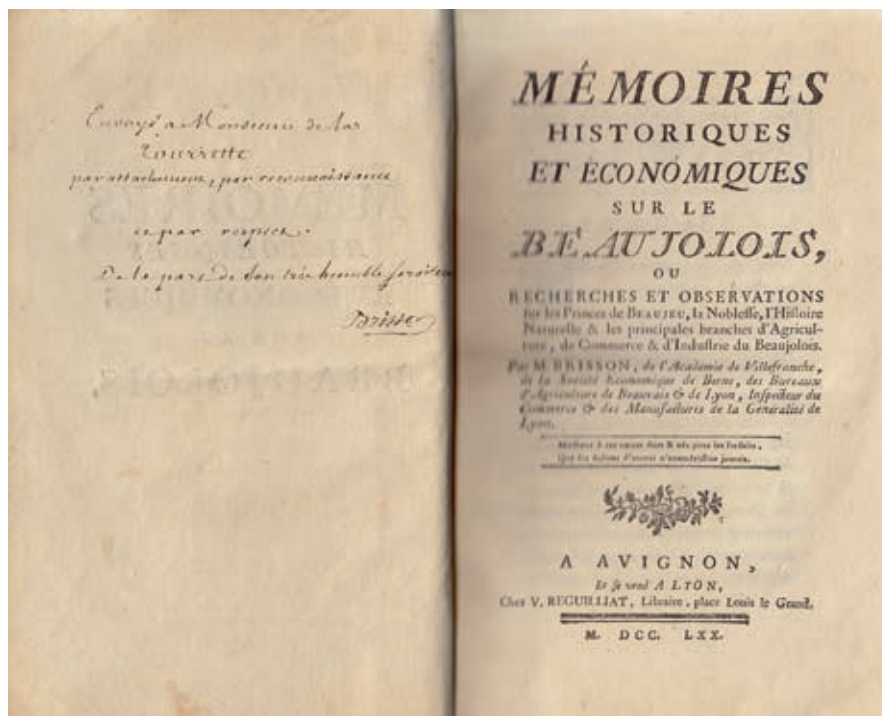 Envoyé a Monsieur de la
Tourrette
par attachement, par reconnaissance
et par respect.
De la part de Son très humble serviteur
Brisson
MÉMOIRES
HISTORIQUES
ET ECONOMIQUES
SUR LE
BEAUJOLOIS,
OU
RECHERCHES ET OBSERVATIONS
sur les Princes de BEAUJEU, la Noblesse, l'Histoire
Naturelle & les principales branches d'Agricul-
ture, de Commerce & d'Industrie du Beaujolois.
Par M. BRISSON, de l'Académie de Villefranche,
de la Société Economique de Berne, des Bureaux
d'Agriculture de Beauvais & de Lyon, Inspecteur du
Commerce & des Manufactures de la Généralité de
Lyon.
A AVIGNON,
Et se vend A LYON,
Chez V. REGUILLIAT, Libraire, place Louis le Grand.
M. DCC. LXX.